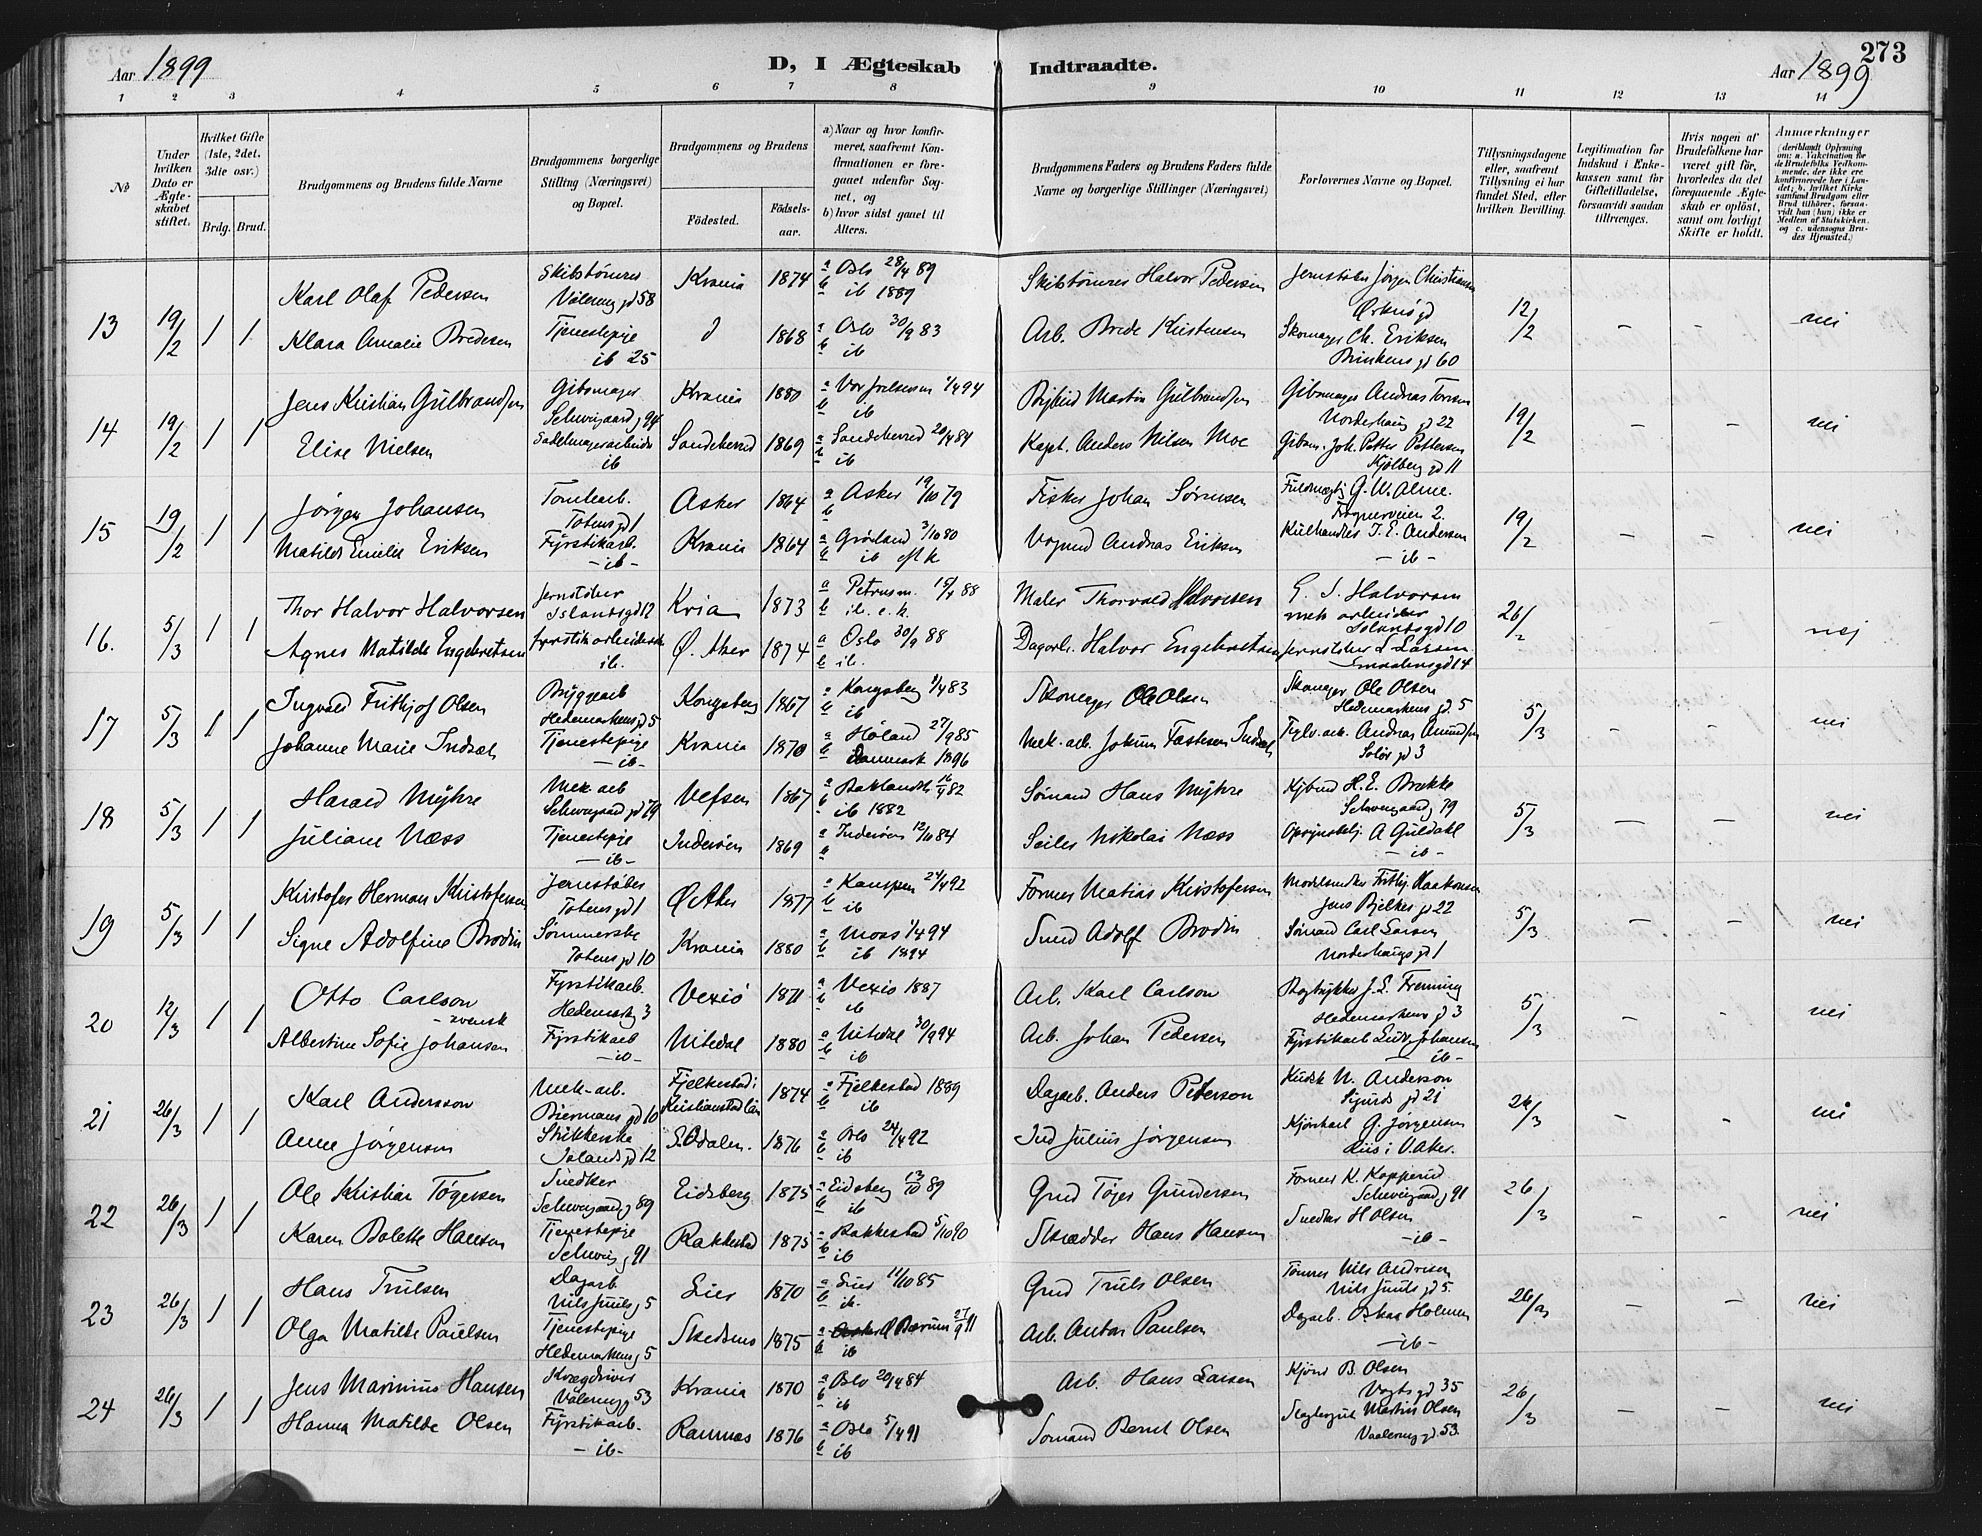 Aar 1899
D, I Ægteskab Indtraadte.
Aar 1899
273
1 2 3 4 5 6 7 8 9 10 11 12 13 14
№
Under hvilken Dato er Ægteskabet stiftet.
Hvilket Gifte (1ste, 2det, 3die osv.)
Brdg. Brud.
Brudgommens og Brudens fulde Navne
Brudgommens borgerlige Stilling (Næringsvei) og Bopæl.
Brudgommens og Brudens
Fødested.
Fødselsaar.
a) Naar og hvor konfirmeret, saafremt Konfirmationen er foregaaet udenfor Sognet, og
b) hvor sidst gaaet til Alters.
Brudgommens Faders og Brudens Faders fulde Navne og borgerlige Stillinger (Næringsvei)
Forlovernes Navne og Bopæl.
Tillysningsdagene eller, saafremt Tillysning ei har fundet Sted, efter hvilken Bevilling.
Legitimation for Indskud i Enkekassen samt for Giftetilladelse, forsaavidt saadan tiltrænges.
Hvis nogen af Brudefolkene har været gift før, hvorledes da det foregaaende Ægteskab er opløst, samt om lovligt Skifte er holdt.
Anmærkninger (deriblandt Oplysning om: a. Vakcination for de Brudefolks Vedkommende, der ikke ere konfirmerede her i Landet; b. hvilket Kirkesamfund Brudgom eller Brud tilhører, forsaavidt han (hun) ikke er Medlem af Statskirken, og c. udensogns Brudes Hjemsted.)
13 19/2 1 1 Karl Olaf Pedersen Skibstømrer Vålereng gd 58 Krania 1874 a Oslo 28/4 89 b ib 1889 Skibstømrer Halvor Pedersen Jernstøber Jørgen Christiansen 12/2 – – nei
Klara Amalie Bredesen Tjenestepige ib 25 d 1868 a Oslo 30/9 83 b ib Arb. Brede Kristensen Skomager Ch. Eriksen Brinkens gd 60
14 19/2 1 1 Jens Kristian Gulbrandsen Gibsmager Schweigaard g 94 Krania 1880 a Vor frelsersm 1/4 94 b ib Martin Gulbrandsen Gibsmager Andreas Norderhaug gd 22 19/2 – – nei
Elise Nielsen Sadelmagerarbeider ib Sandeherred 1869 a Sandeherred 20/4 84 b ib Kapt. Anders Nilsen Moe Gibsm. Joh. Petter Pettersen Kjølberg gd 11
15 19/2 1 1 Jørgen Johansen Tomtearb. Totens gd 1 Asker 1864 a Asker 19/10 79 b Fisker Johan Sørensen Fuldmægtig G. W. Alme. Frognerveien 2. 19/2 – – nei
Matilde Emilie Eriksen Fyrstikarb. – ib – Krania 1864 a Grønland 3/10 80 b ib eft k Vognmd Andreas Eriksen Kulhandler I. E. Andersen – ib –
16. 5/3 1 1 Thor Halvor Halvorsen Jernstøber Islandsgd 12 Kria 1873 a Petrusm. 15/4 88 b ib. e. k. Maler Thorvald Halvorsen G. S. Halvorsen mek arbeider Islandsgd 10 26/2 – – nej
Agnes Matilde Engebretsen fyrstikarbeiderske ib. Ø. Aker 1874 a Oslo 30/9 88 b ib. Dagarb. Halvor Engebretsen Jernstøber L Larsen Smaalensgd 14
17 5/3 1 1 Ingvald Frithjof Olsen Bryggearb Hedemarkens gd 5 Kongsberg 1867 a Kongsberg 1/4 83 b ib Skomager Ole Olsen Skomager Ole Olsen Hedemarkens gd. 5 5/3 – – nei
Johanne Marie Indsæt Tjenestepige – ib – Krania 1870 a Høland 27/9 85 b Danmark 1896 Mek. arb. Jokum Fastesen Indsæt Andreas Amundsen Solør gd 3
18 5/3 1 1 Harald Myhre Mek arb Schweigaard gd 79 Vefsen 1867 a Baklandet 16/4 82 b ib 1882 Sømand Hans Myhre Kjbmd H. E. Brække Schweigaard g 79 5/3 – – nei
Juliane Næss Tjenestepige – ib – Inderøen 1869 a Inderøen 12/10 84 b Seiler Nikolai Næss Opsynsbetj. A Guldahl – ib –
19 5/3 1 1 Kristofer Herman Kristofersen Jernstøber Totens gd 1 Ø Aker 1877 a Kampen 24/4 92 b ib Former Matias Kristofersen Modelsnedker Frithj. Haakonsen Jens Bjelkes gd 22 5/3 – – nei
Signe Adolfine Brodin Sømmerske Totens gd 10 Krania 1880 a Moss 1/4 94 b ib 1894 Smed Adolf Brodin Sømand Carl Larsen Norderhaugs gd 1
20 12/3 1 1 Otto Carlson – svensk Fyrstikarb. Hedemark g 3 Vexiö 1871 a Vexiö 1887 b ib Arb. Karl Carlson Bogtrykker J. E. Frenning Hedemarkens gd 3 5/3 – – nei
Albertine Sofie Johansen Fyrstikarb – ib – Nitedal 1880 a Nitedal 30/9 94 b ib Arb. Johan Pedersen Fyrstikarb Ludv. Johansen – ib –
21 26/3 1 1 Karl Andersson Mek-arb. Biermans gd 10 Fjelkestad i Kristianstad län 1874 a Fjelkestad 1889 b ib Dagarb. Anders Peterson Kudsk N. Anderson Sigurds gd 21 26/3 – – nei
Anne Jørgensen Strikkerske Islands gd 12 S. Odalen. 1876 a Oslo 24/4 92 b ib Ind Julius Jørgensen Kjørekarl G. Jørgensen Riis i V. Aker.
22 26/3 1 1 Ole Kristian Tøgersen Snedker Schweigaard g 89 Eidsberg 1875 a Eidsberg 13/10 89 b ib Grmd Tøger Gundersen Former K. Kopperud Schweigaard g 91 26/3 – – nei
Karen Bolette Hansen Tjenestepige Schweig g 91 Rakkestad 1875 a Rakkestad 5/10 90 b ib Skrædder Hans Hansen Snedker H Olsen – ib –
23 26/3 1 1 Hans Trulsen Dagarb Nils Juuls g 5 Lier 1870 a Lier 11/10 85 b ib. Grmd Truls Olsen Tømmer Nils Andersen Nils Juuls gd 5. 26/3 – – nei
Olga Matilde Paulsen Tjenestepige Hedemarkens g 5 Skedsmo 1875 a Bærum 27/9 b ib Arb. Anton Paulsen Dagarb. Oskar Holmen – ib –
24 26/3 1 1 Jens Marinius Hansen Kvægdriver Vålereng g 53 Krania 1870 a Oslo 20/4 84 b ib Arb. Hans Larsen Kjørnd B. Olsen Vogts gd 35 26/3 – – nei
Hanna Matilde Olsen Fyrstikarb. – ib – Ramnæs 1876 a Oslo 5/4 91 b ib Sømand Bernt Olsen Martin Olsen Vaalereng gd. 53